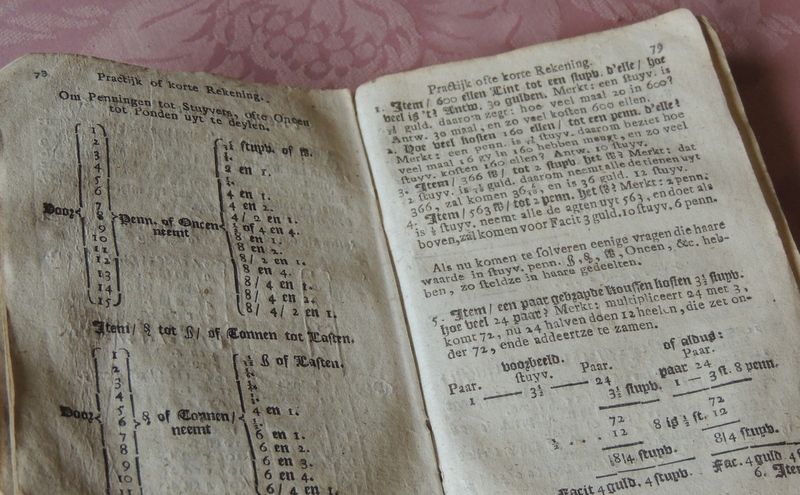 78
Practijk of korte Rekening.
Om Penningen tot Stuyvers, ofte Oncen
tot Ponden uyt te deylen.
1
2
3
4
5
6
7
8
9
10
11
12
13
14
15
Door
Penn. of Oncen
neemt
stuyv. of ℔.
2 en 1.
4 en 1.
4 en 2.
4/ 2 en 1.
of 4 en 4.
8 en 1.
8 en 2.
8/ 2 en 1.
8 en 4.
8/ 4 en 1.
8/ 4 en 2.
8/ 4/ 2 en 1.
Item/ tot of Tonnen tot Lasten.
1
2
3
4
5
6
7
8
9
10
11
Door
of Tonnen/
neemt
of Lasten.
4 en 1.
6 en 1.
6 en 2.
6 en 3.
6 en 4.
6/ 4 en 1.
79
Practijk ofte korte Rekening.
1. Item/ 600 ellen Lint tot een stupv. d'elle/ hoe
veel is 't? Antw. 30 gulden. Merkt: een stuyv. is
guld. daarom zegt: hoe veel maal 20 in 600?
Antw. 30 maal, en zo veel kosten 600 ellen.
2. Hoe veel kosten 160 ellen/ tot een penn. d'elle?
Merkt: een penn. is stuyv. daarom beziet hoe
veel maal 16 gy in 160 hebben moogt, en zo veel
stuyv. kosten 160 ellen? Antw. 10 stuyv.
3. Item/ 366 ℔/ tot 2 stupv. het ℔? Merkt: dat
2 stuyv. is guld. daarom neemt alle de tienen uyt
366, zal komen 36, en is 36 guld. 12 stuyv.
4. Item/ 563 ℔/ tot 2 penn. het ℔? Merkt: 2 penn.
is ⅛ stuyv. neemt alle de agten uyt 563, en doet als
boven, zal komen voor Facit 3 guld. 10 stuyv. 6 penn.
Als nu komen te solveren eenige vragen die haare
waarde in stuyv. penn. ℔, Oncen, &c. heb-
ben, zo steldze in haare gedeelten.
5. Item/ een paar gebrayde Koussen kosten 3½ stupv.
hoe veel 24 paar? Merkt: multipliceert 24 met 3,
komt 72, nu 24 halven doen 12 heelen, die zet on-
der 72, ende addeertze te zamen.
voorbeeld. of aldus:
Paar. stuyv. Paar. Paar.
1 — 3½ — 24 paar 24
3½ stupv. 1 — 3 st. 8 penn.
72 72
½ . . . 12 8 is ½ st. 12
8|4 stupv. 8|4 stupv.
Facit 4 guld. 4 stupv. Fac. 4 guld. 4 s
6. Item